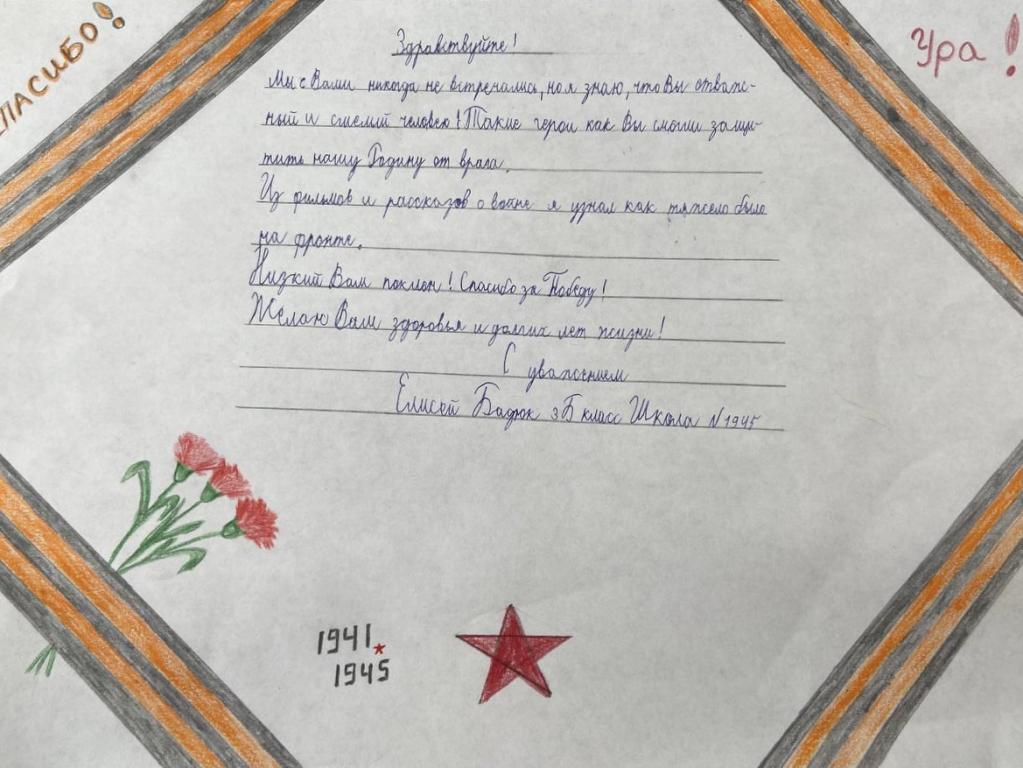 СПАСИБО!
Ура!
Здравствуйте!
Мы с Вами никогда не встречались, но я знаю, что Вы отваж-
ный и смелый человек! Такие герои как Вы смогли защи-
тить нашу Родину от врага.
Из фильмов и рассказов о войне я узнал как тяжело было
на фронте.
Низкий Вам поклон! Спасибо за Победу!
Желаю Вам здоровья и долгих лет жизни!
С уважением
Елисей Бадюк 3 Б класс Школа №1945
1941
1945